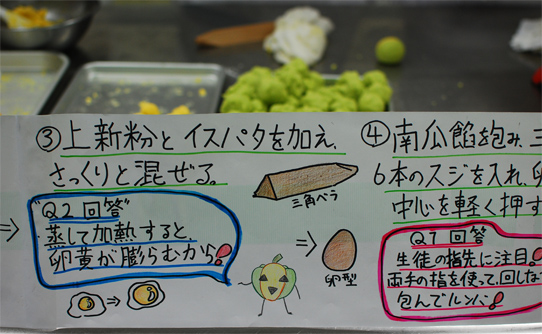 ③上新粉とイスパタを加え、
さっくりと混ぜる。
"Q2 回答"
蒸して加熱すると、
卵黄が膨らむから!
三角ベラ
卵型
④南瓜餡を包み、三
6本のスジを入れ、卵
中心を軽く押す
Q7 回答
生徒の指先に注目!
両手の指を使って、回しな
包んでルンバ!